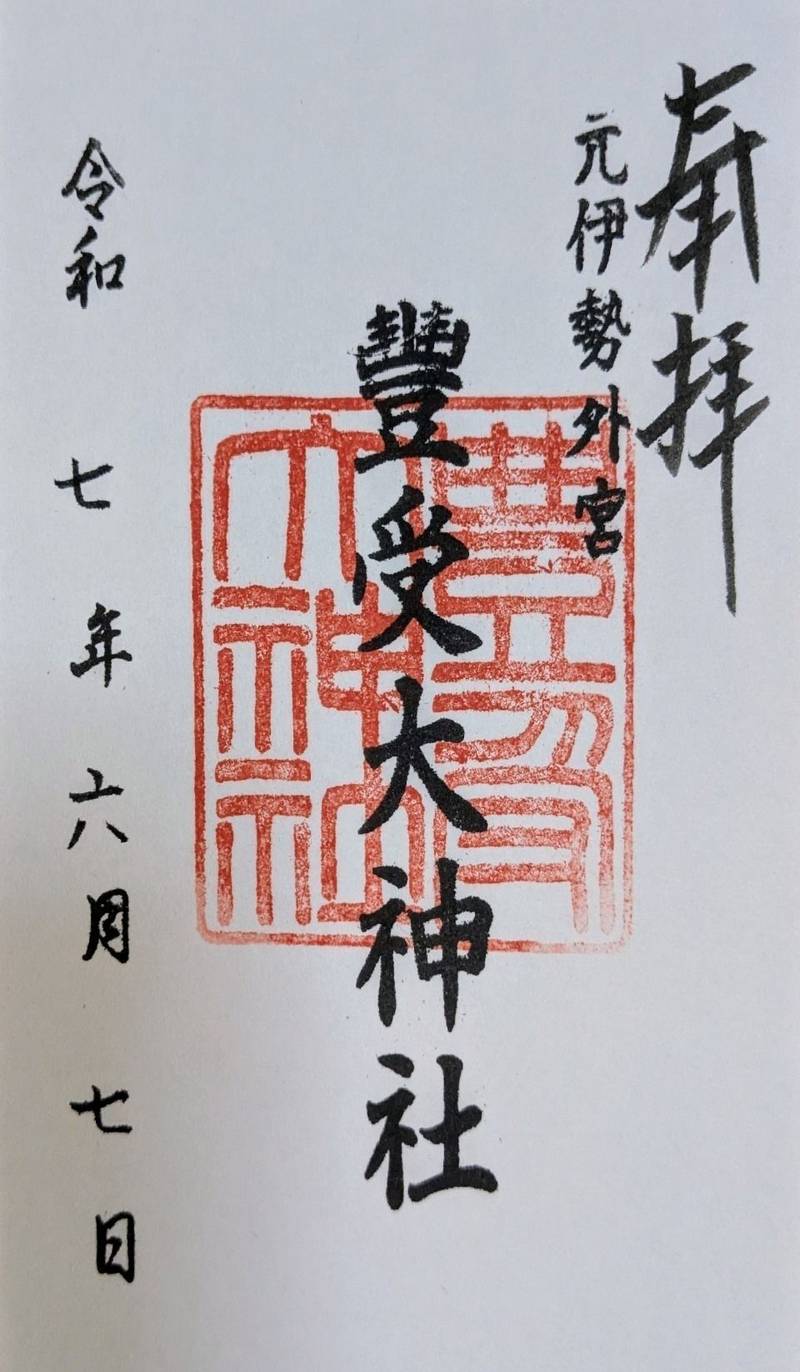 奉拝
元伊勢外宮
豐受大神社
豊受大神社
令和七年六月七日